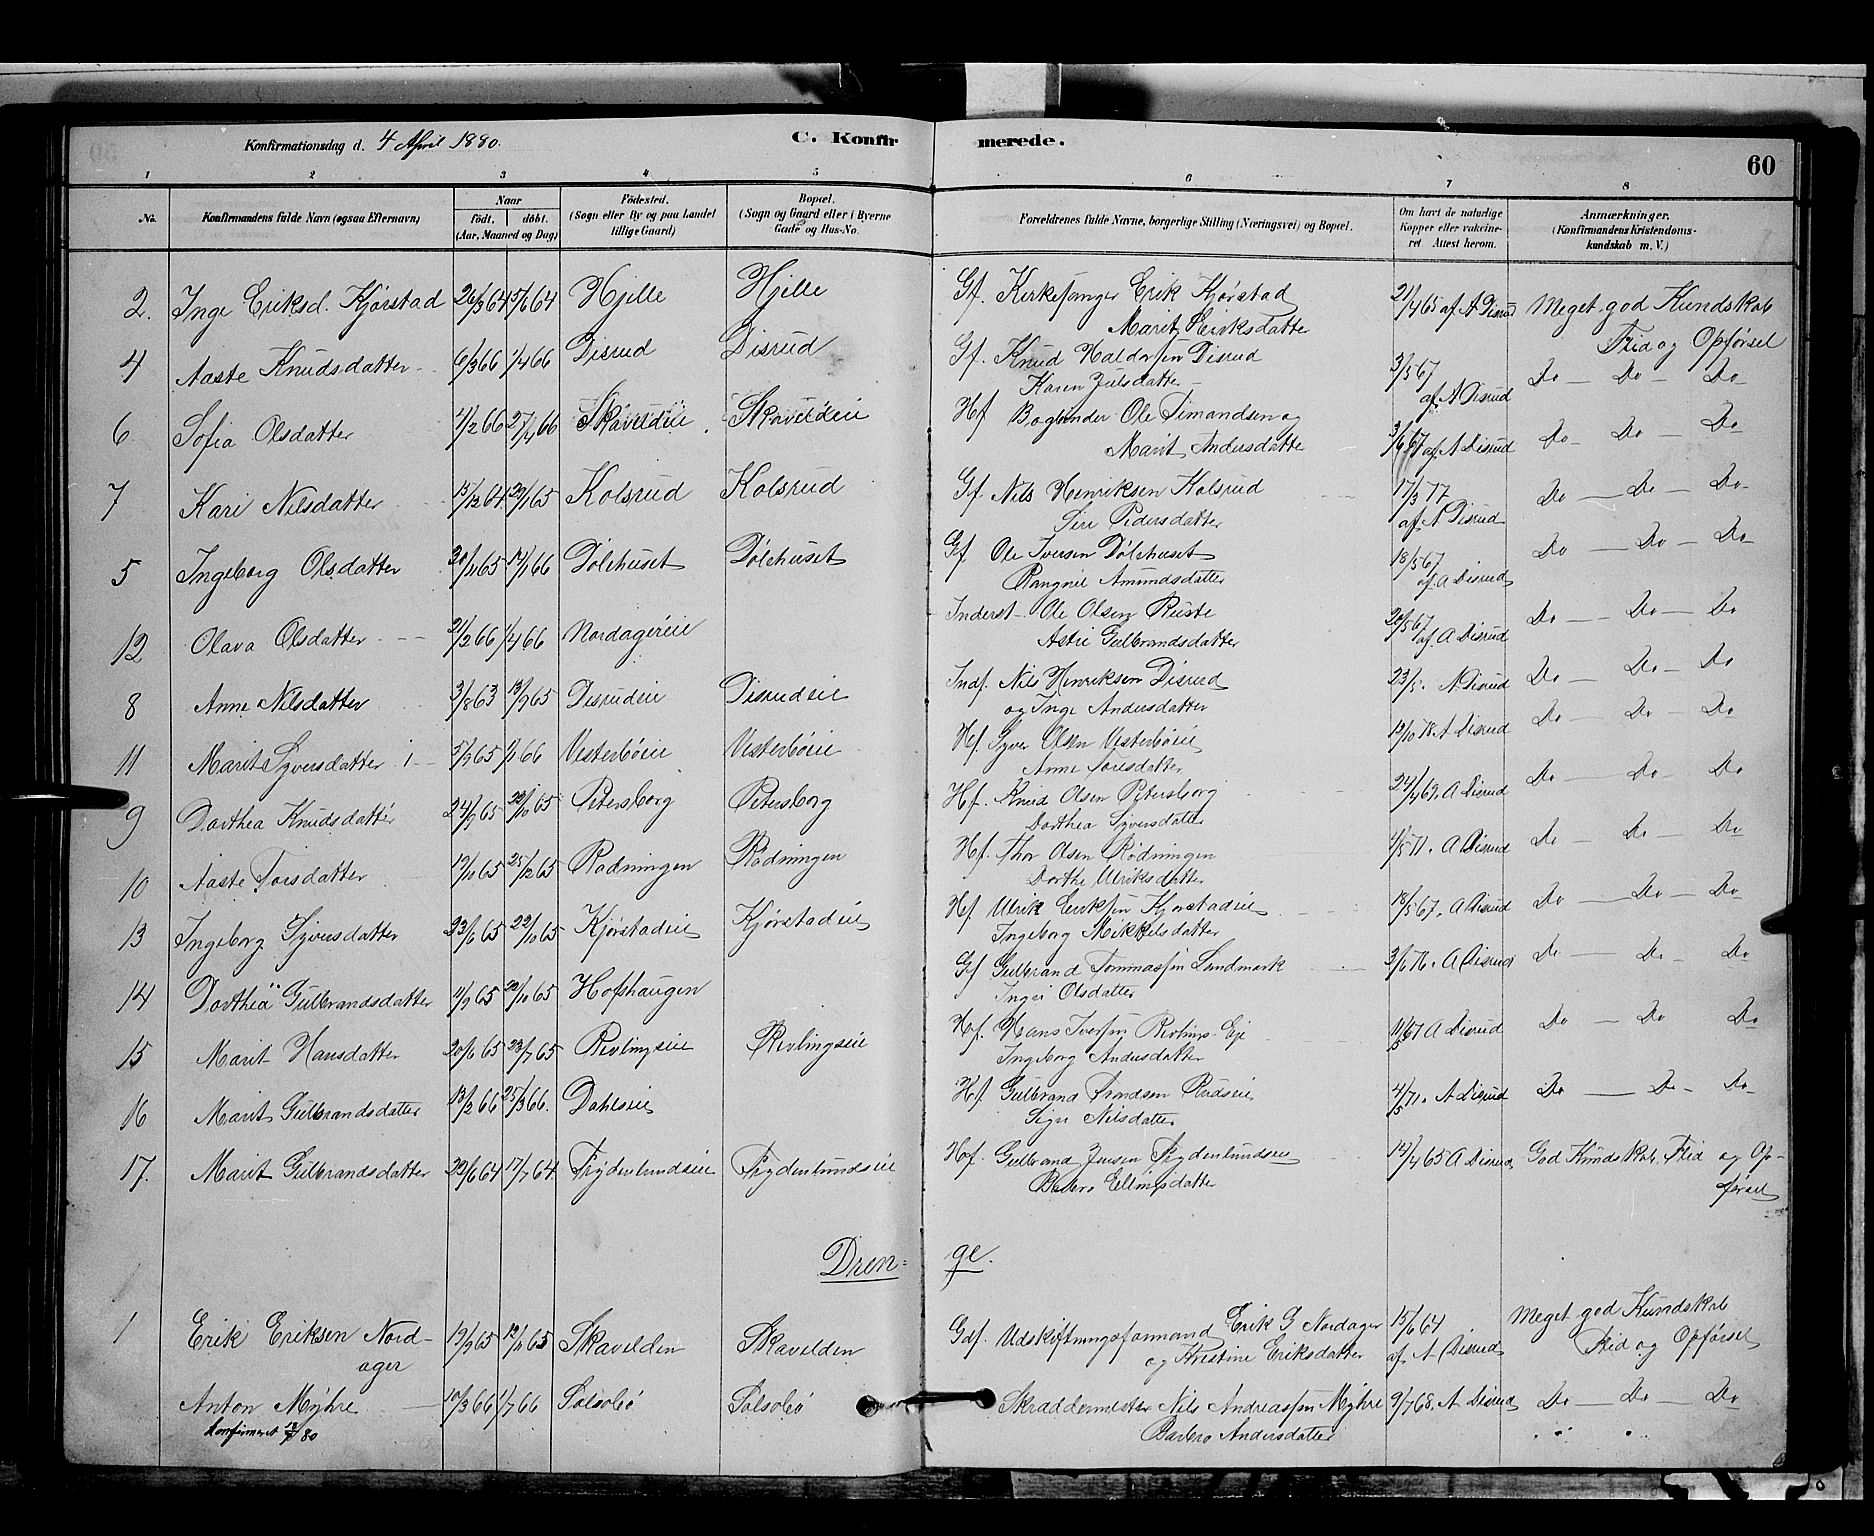 Konfirmationsdag d. 4 April 1880. C. Konfirmerede. 60
1 2 3 4 5 6 7 8
No. Konfirmandens fulde Navn (ogsaa Efternavn) Naar født. døbt. (Aar, Maaned og Dag) Fødested. (Sogn eller By og paa Landet tillige Gaard) Bopæl. (Sogn og Gaard eller i Byerne Gade og Hus-No. Forældrenes fulde Navne, borgerlige Stilling (Næringsvei) og Bopæl. Om havt de naturlige Kopper eller vakcineret. Attest herom. Anmærkninger. (Konfirmandens Kristendomskundskab m. V.)
2. Inge Eriksd. Kjørstad 26/3 64 5/6 64 Hjelle Hjelle Gf. Kirkesanger Erik Kjørstad 21/4 65 af A Disrud Meget god Kundskab
Marit Eriksdatter Flid og Opførsel
4 Aaste Knudsdatter 6/3 66 1/4 66 Disrud Disrud Gf. Knud Haldorsen Disrud 3/5 67 Do — Do — Do
Karen Julsdatter af A Disrud
6. Sofia Olsdatter 4/2 66 27/4 66 Skaveldeie Skaveldeie Hf Bogbinder Ole Simensen og
Marit Andersdatter 3/6 67 af A Disrud Do — Do — Do
7 Kari Nilsdatter 15/12 64 29/1 65 Kolsrud Kolsrud Gf. Nils Henriksen Kolsrud 17/3 77 Do — Do — Do
Siri Pedersdatter af A Disrud
5 Ingeborg Olsdatter 30/11 65 14/1 66 Dølehuset Dølehuset Gf Ole Iversen Dølehuset 18/5 67 Do — Do — Do
Rangnil Amundsdatter af A Disrud
12 Olava Olsdatter 21/2 66 1/4 66 Nordagereie Inderst Ole Olsen Ruste 20/5 67 Do — Do — Do
Astri Gulbrandsdatter af A Disrud
8 Anne Nilsdatter 3/8 63 13/9 65 Disrudeie Disrudeie Indf. Nils Henriksen Disrud 23/5. A Disrud Do — Do — Do
og Inge Andersdatter
11 Marit Syversdatter 5/9 65 1/1 66 Vesterbøeie Vesterbøeie Hf. Syver Olsen Vesterbøeie 12/10 78. A Disrud Do — Do — Do
Anne
9 Dorthea Knudsdatter 24/9 65 22/10 65 Petersborg Petersborg Hf. Knud Olsen Petersborg 24/4 69. A Disrud Do — Do — Do
Dorthea Syversdatter
10 Aaste Torsdatter 19/10 65 25/12 65 Rødningen Rødningen Hf. Thor Olsen Rødningen 4/5 71. A Disrud Do — Do — Do
Dorthe Ulriksdatter
13 Ingeborg Syversdatter 23/6 65 22/10 65 Kjørstadeie Kjørstadeie Hf Ulrik Eriksen Kjørstadeie 18/5 67. A Disrud Do — Do — Do
Ingeborg Mikkelsdatter
14 Dorthea Gulbrandsdatter 11/9 65 22/10 65 Hofshaugen Gf Gulbrand Tommassen Landmark 3/6 76. A Disrud Do — Do — Do
Ingri Olsdatter
15 Marit Hansdatter 20/6 65 23/7 65 Revlingseie Revlingseie Hf. Hans Iversen Revlings-Eje 11/5 67 A Disrud Do — Do — Do
Ingeborg Andersdatter
16 Marit Gulbrandsdatter 13/2 66 25/3 66. Dahlseie Hf Gulbrand Trondsen Rudseie 4/5 71. A Disrud Do — Do — Do
Sigri Nilsdatter
17. Marit Gulbrandsdatter 22/6 64 17/7 64 Frydenlundseie Frydenlundseie Hf. Gulbrand Jensen Frydenlundseie 12/4 65 A Disrud God Kundskab, Flid og Op-
Barbro Ellingsdatter førsel
Dren-ge.
1 Erik Eriksen Nord- 19/9 65 12/11 65 Skavelden Skavelden Gdf. Udskiftningsformand Erik G Nordager 15/6 64 Meget god Kundskab
ager og Kristine Eriksdatter af A Disrud Flid og Opførsel
Anton Myhre 10/3 66 1/7 66 Solsobø Solsobø Skræddermester Nils Andreassen Myhre 9/7 68. A Disrud Do — Do — Do
Konfirmeret 80 Barbro Andersdatter